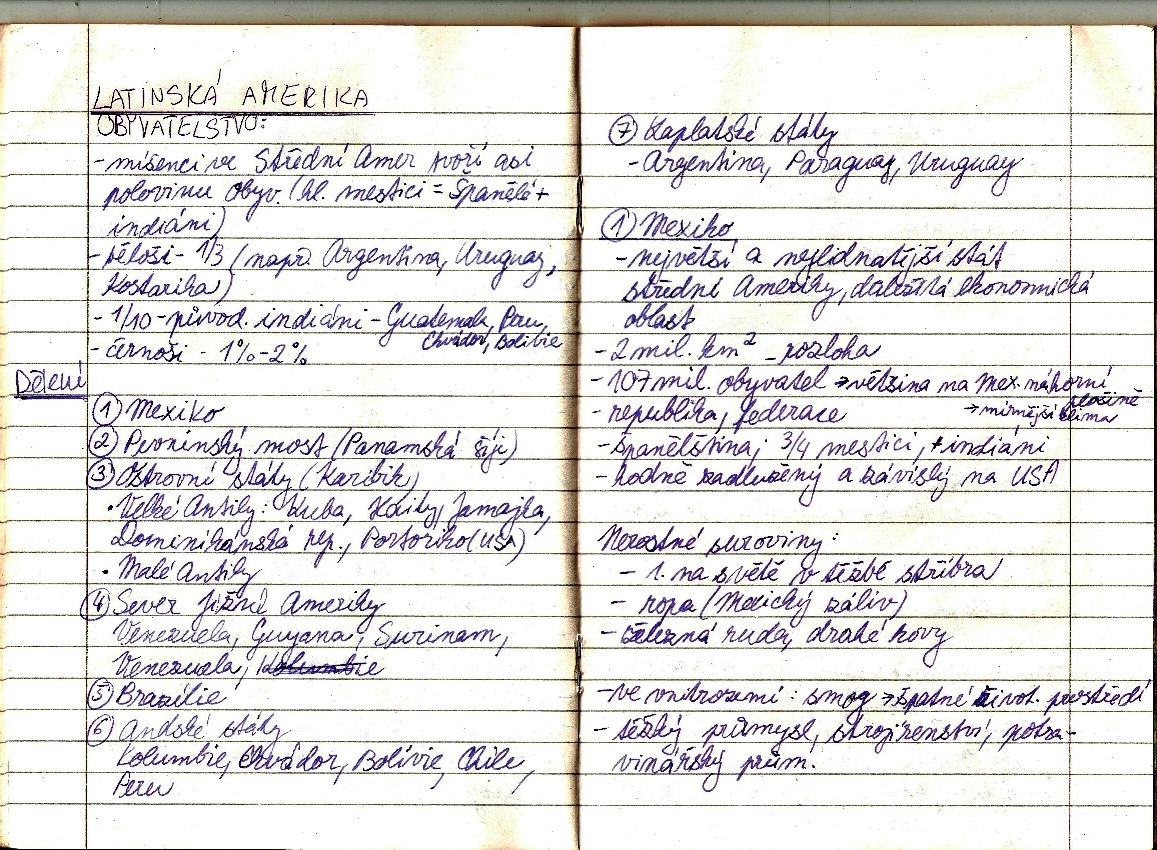 LATINSKÁ AMERIKA
OBYVATELSTVO:
- míšenci ve Střední Amer tvoří asi
polovinu obyv. (hl. mestici = Španělé +
indiáni)
- běloši - 1/3 (např. Argentina, Uruguay,
Kostarika)
- 1/10 - původ. indiáni - Guatemala, Peru,
Ekvádor, Bolivie
- černoši - 1% - 2%
Dělení
① Mexiko
② Pevninský most (Panamská šíji)
③ Ostrovní státy (Karibik)
• Velké Antily: Kuba, Haity, Jamajka,
Dominikánská rep., Portoriko (USA)
• Malé Antily
④ Sever Jižní Ameriky
Venezuela, Guyana, Surinam,
Venezuela, Kolumbie
⑤ Brazílie
⑥ Andské státy
Kolumbie, Ekvádor, Bolívie, Chile,
Peru
⑦ Laplatské státy
- Argentina, Paraguay, Uruguay
① Mexiko
- největší a nejlidnatější stát
střední Ameriky, důležitá ekonomická
oblast
- 2 mil. km² - rozloha
- 107 mil. obyvatel → většina na Mex. náhorní
plošině
- republika, federace → mírnější klima
- španělština; 3/4 mestici, + indiáni
- hodně zadlužený a závislý na USA
Nerostné suroviny:
- 1. na světě v těžbě stříbra
- ropa (Mexický záliv)
- železná ruda, drahé kovy
- ve vnitrozemí: smog → špatné život. prostředí
- těžký průmysl, strojírenství, potra-
vinářský prům.